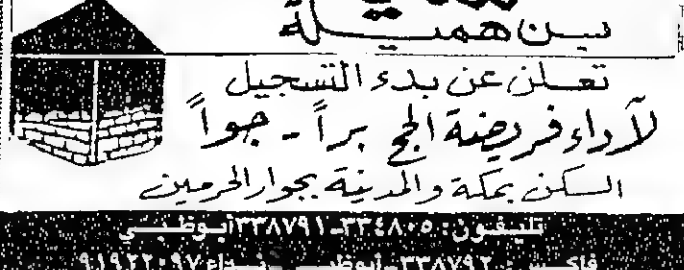 بن هميلة
تعلن عن بدء التسجيل
لآداء فريضة الحج براً - جواً
السكن بمكة والمدينة بجوار الحرمين
تليفون: ٣٣٤٨٠٥ - ٣٣٨٧٩١ أبوظبي
فاكس: ٣٣٨٧٩٢ - أبوظبي - نداء ٩١٩٢٢٠٩٧